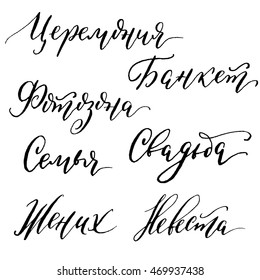 Церемония
Банкет
Фотозона
Семья
Свадьба
Жених
Невеста
469937438